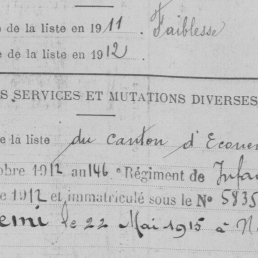 e de la liste en 1911 Faiblesse
e de la liste en 1912
S SERVICES ET MUTATIONS DIVERSES
e la liste du canton d'Econ
obre 1912 au 146e Régiment de Infa
e 1912 et immatriculé sous le No 5835
le 22 Mai 1915 à N